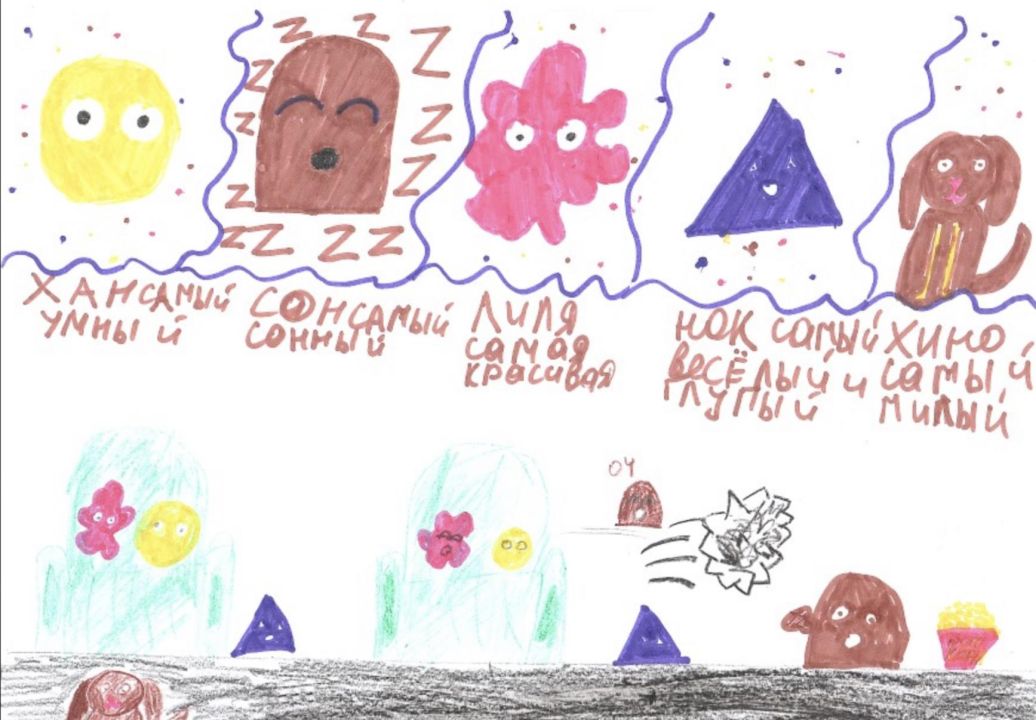 Z Z Z
Z Z
Z Z
Z Z
ZZ Z Z
ХАН САМЫЙ
УМНЫЙ
СОН САМЫЙ
СОННЫЙ
ЛИЛЯ
САМАЯ
КРАСИВАЯ
НОК САМЫЙ
ВЕСЁЛЫЙ И
ГЛУПЫЙ
ХИНО
САМЫЙ
МИЛЫЙ